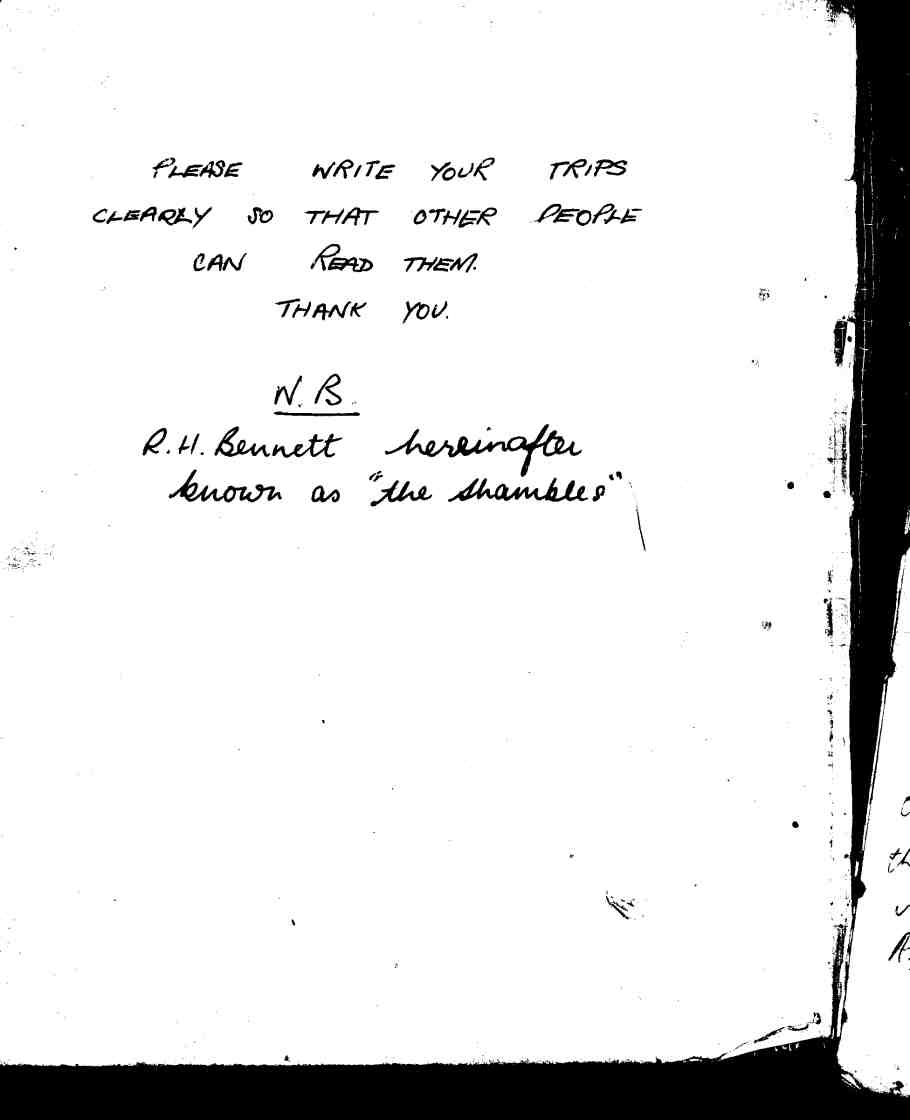 PLEASE WRITE YOUR TRIPS
CLEARLY SO THAT OTHER PEOPLE
CAN READ THEM.
THANK YOU.
N.B.
R.H. Bennett hereinafter
known as "the shambles"